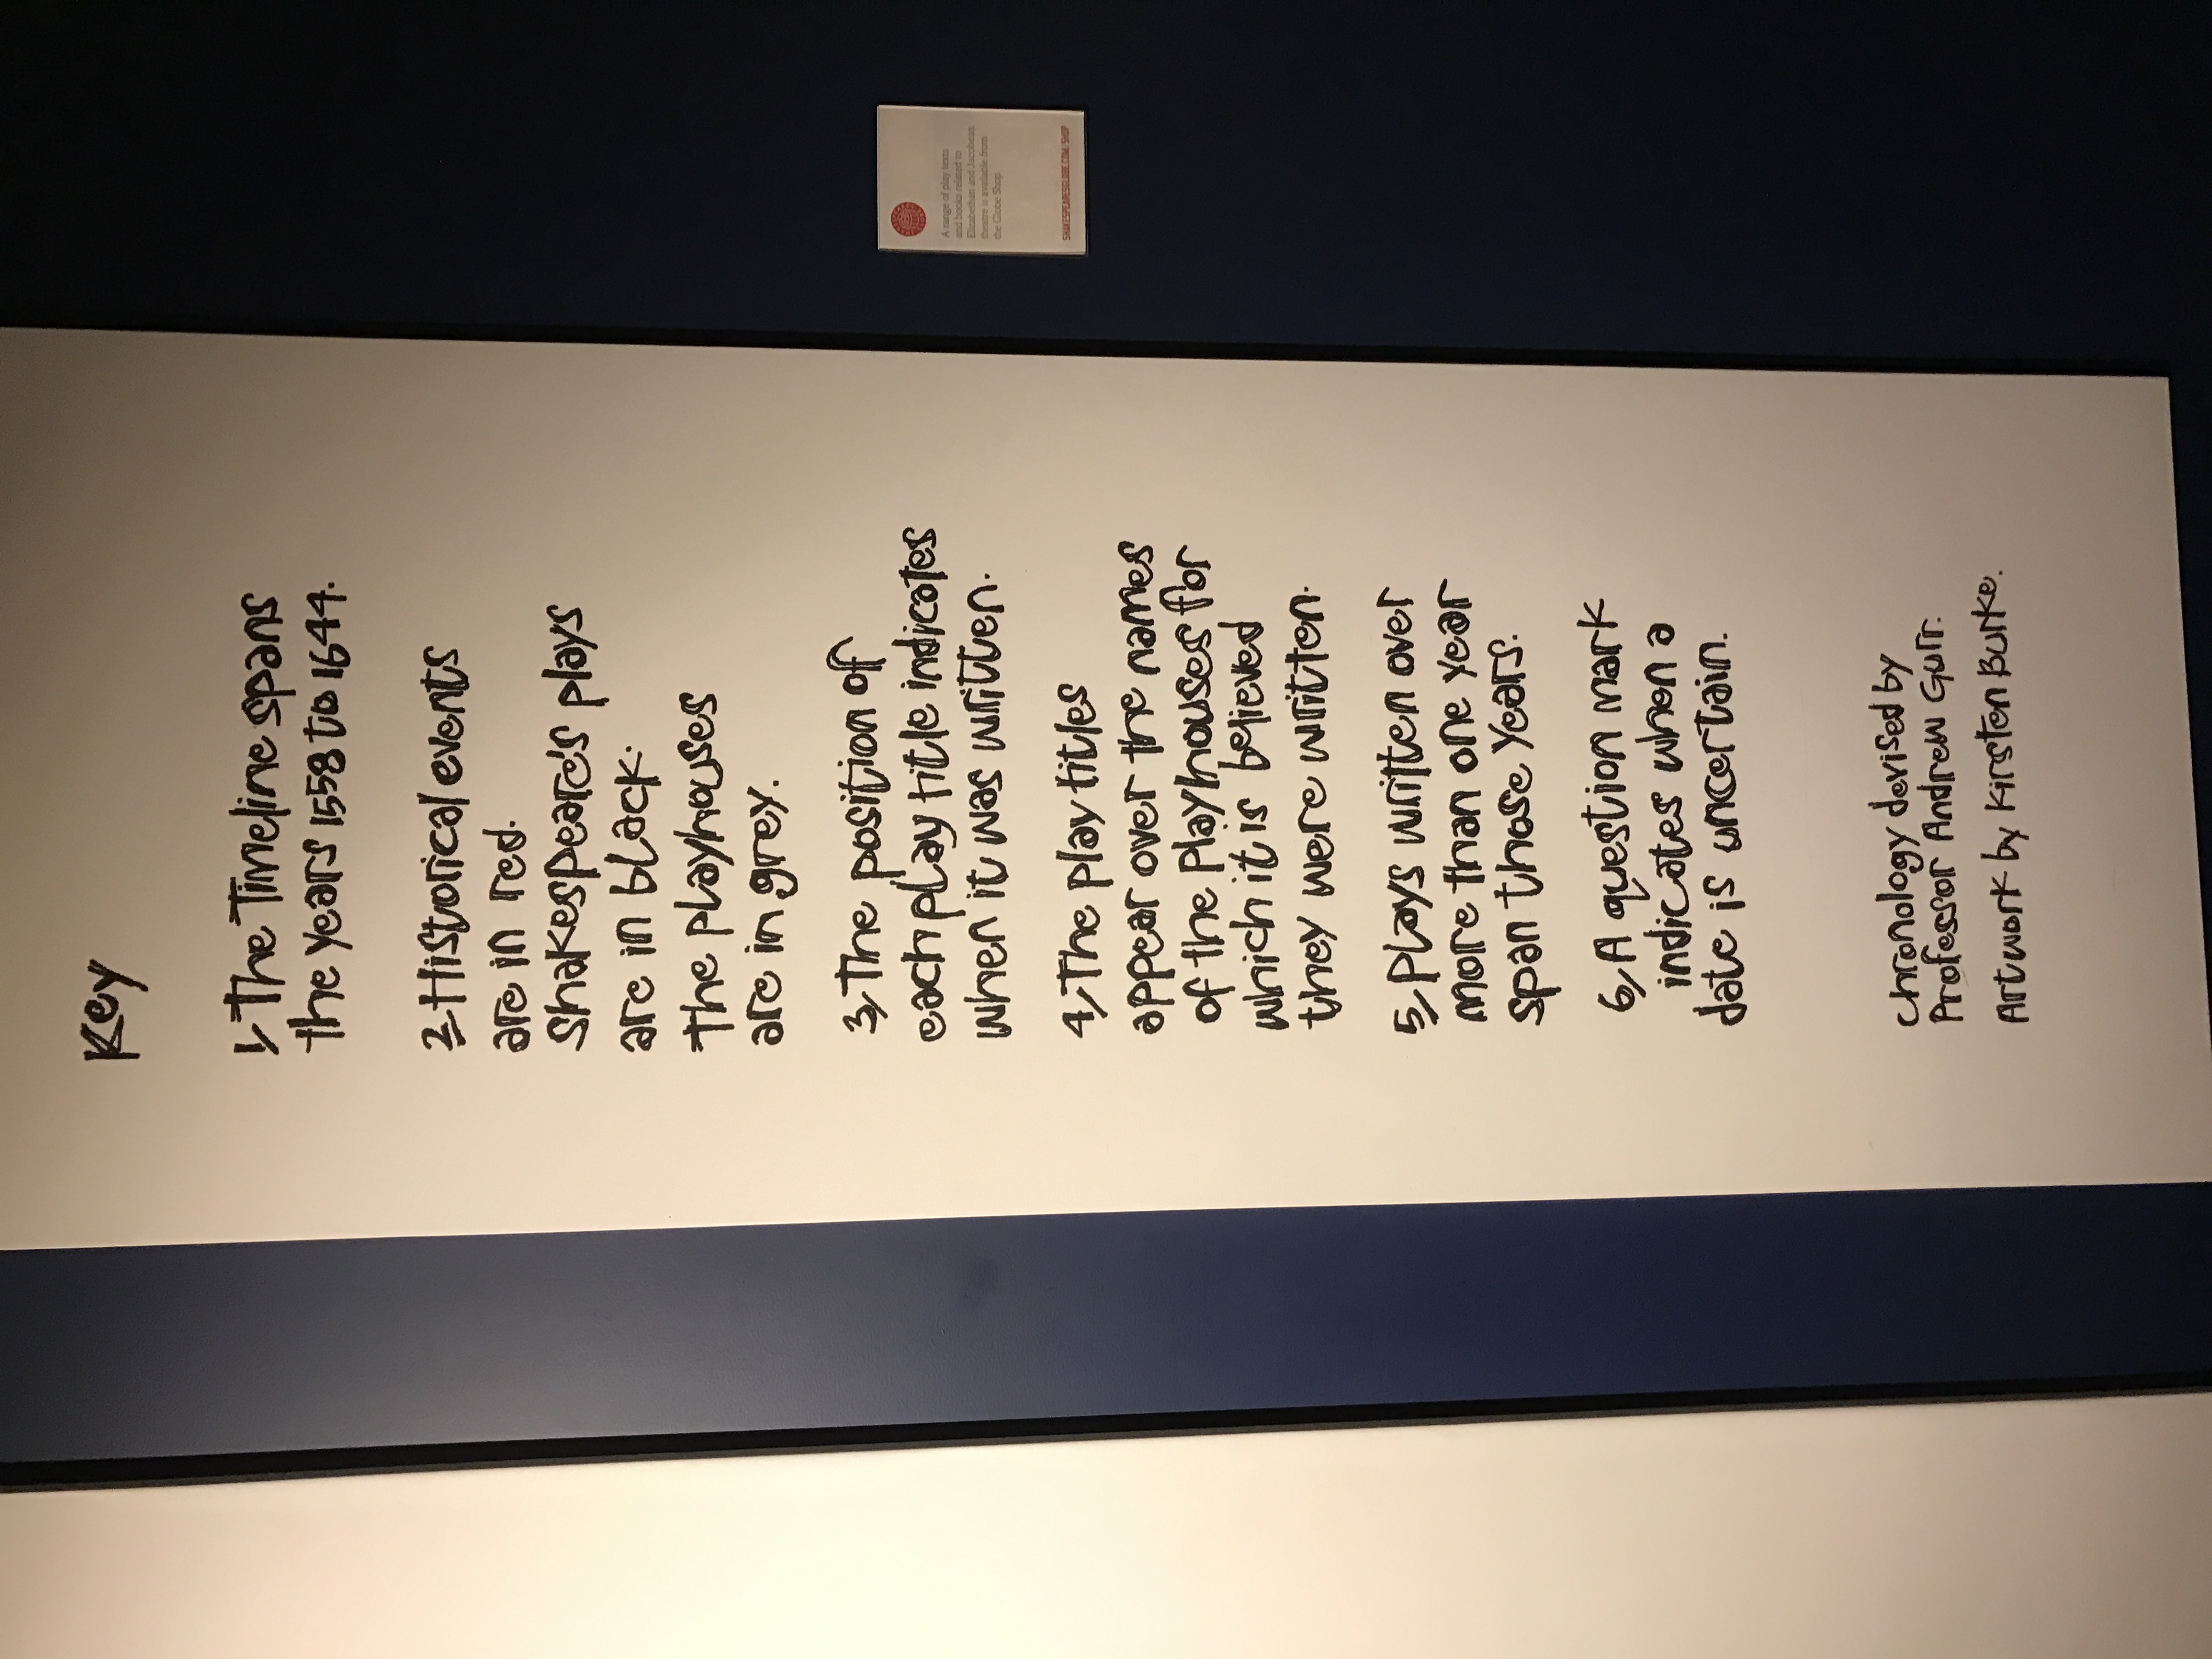 Key
1, The Timeline spans
the years 1558 to 1644.
2, Historical events
are in red.
Shakespeare's plays
are in black.
The playhouses
are in grey.
3, The position of
each play title indicates
when it was written.
4, The play titles
appear over the names
of the playhouses for
which it is believed
they were written.
5, Plays written over
more than one year
span those years.
6, A question mark
indicates when a
date is uncertain.
Chronology devised by
Professor Andrew Gurr.
Artwork by Kirsten Burke.
A range of play texts
and books related to
Elizabethan and Jacobean
theatre is available from
the Globe Shop
SHAKESPEARESGLOBE.COM/SHOP